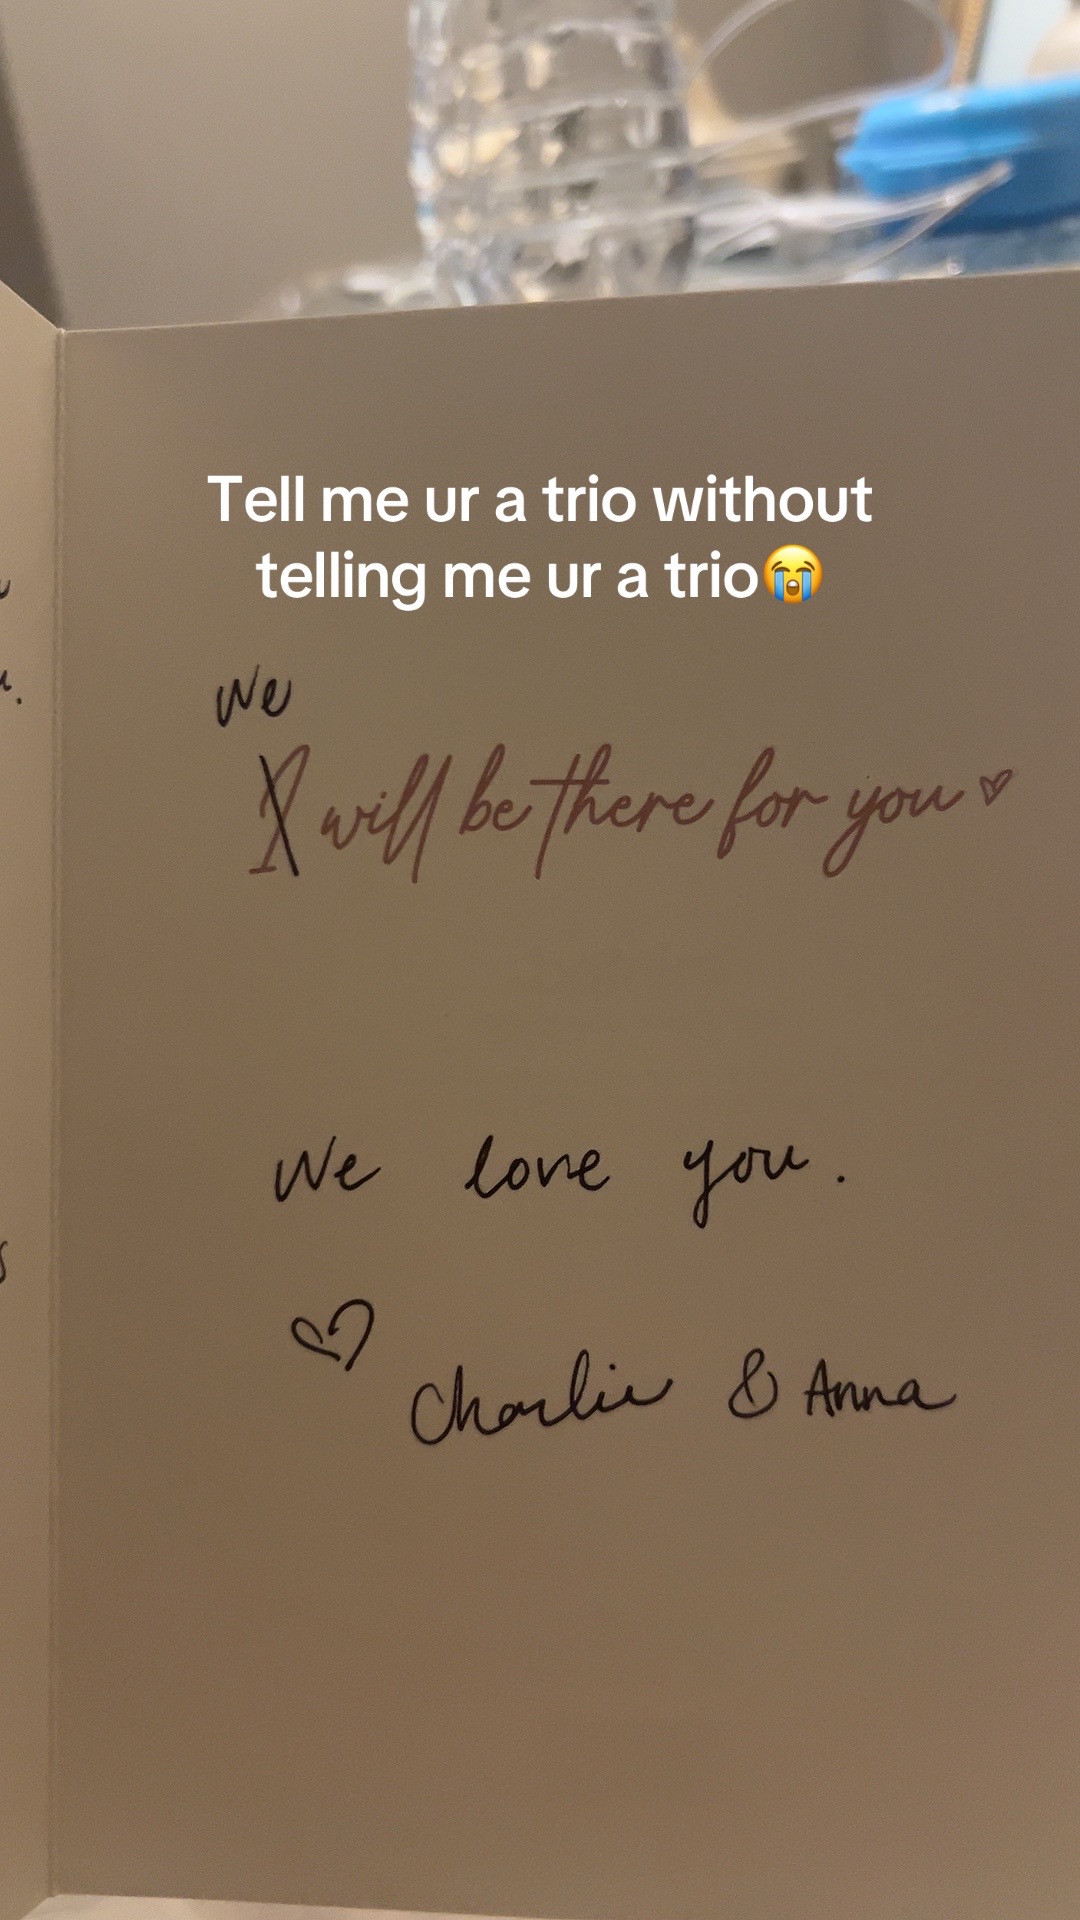 Tell me ur a trio without
telling me ur a trio😭
we
I will be there for you ♥
We love you.
♡
Charlie & Anna